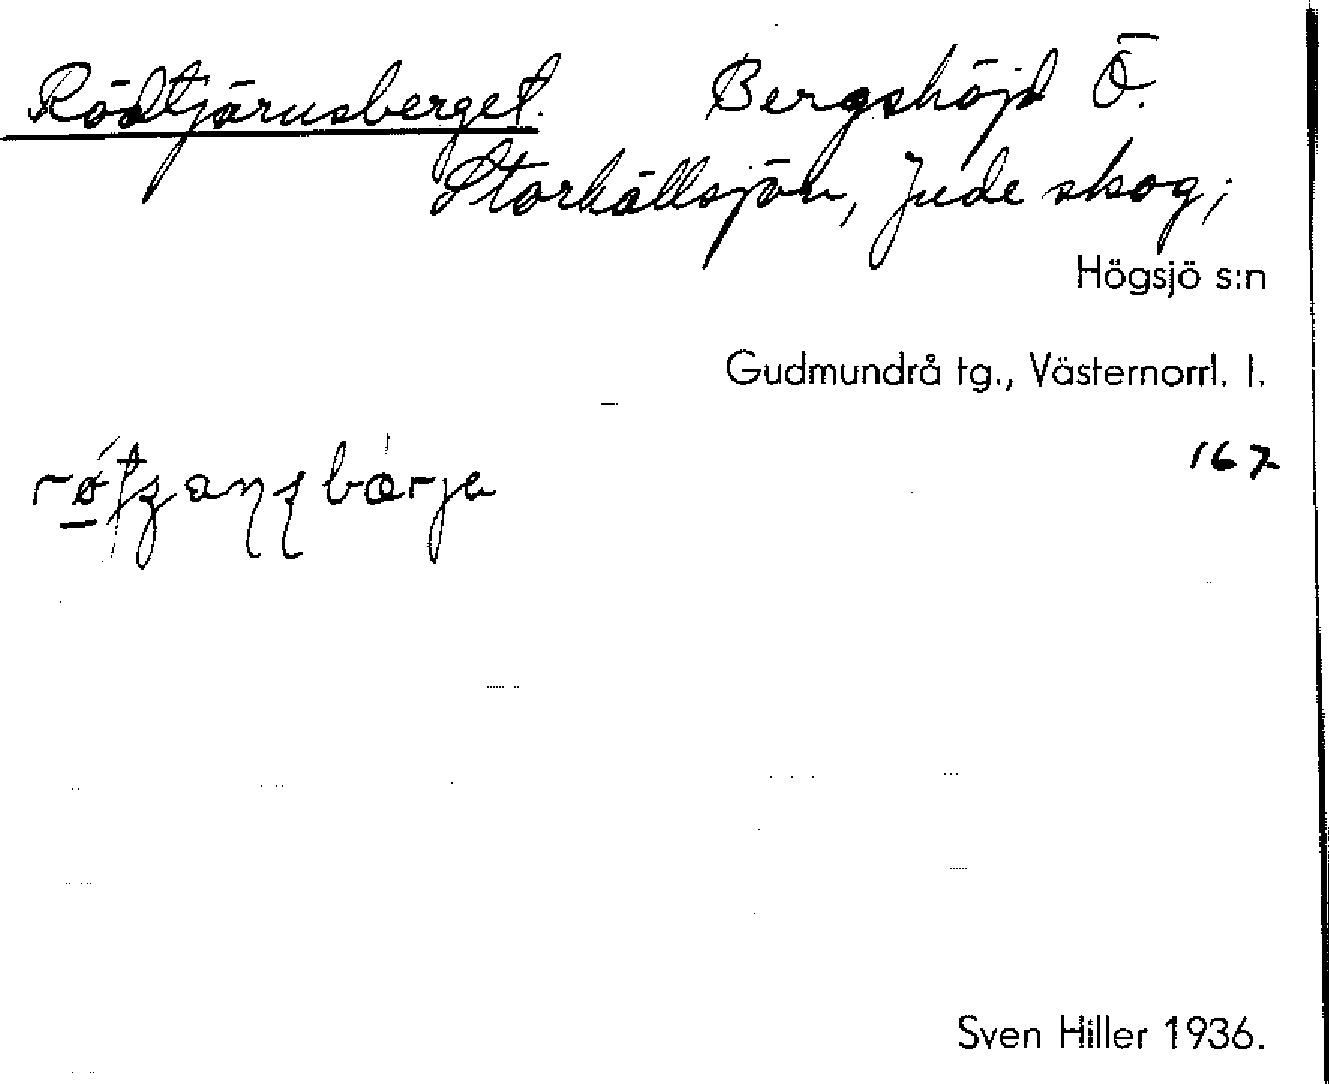 Rödtjärnsberget. Bergshöjd Ö.
Storkällsjön, Jude skog;
Högsjö s:n
Gudmundrå tg., Västernorrl. l.
167
Sven Hiller 1936.